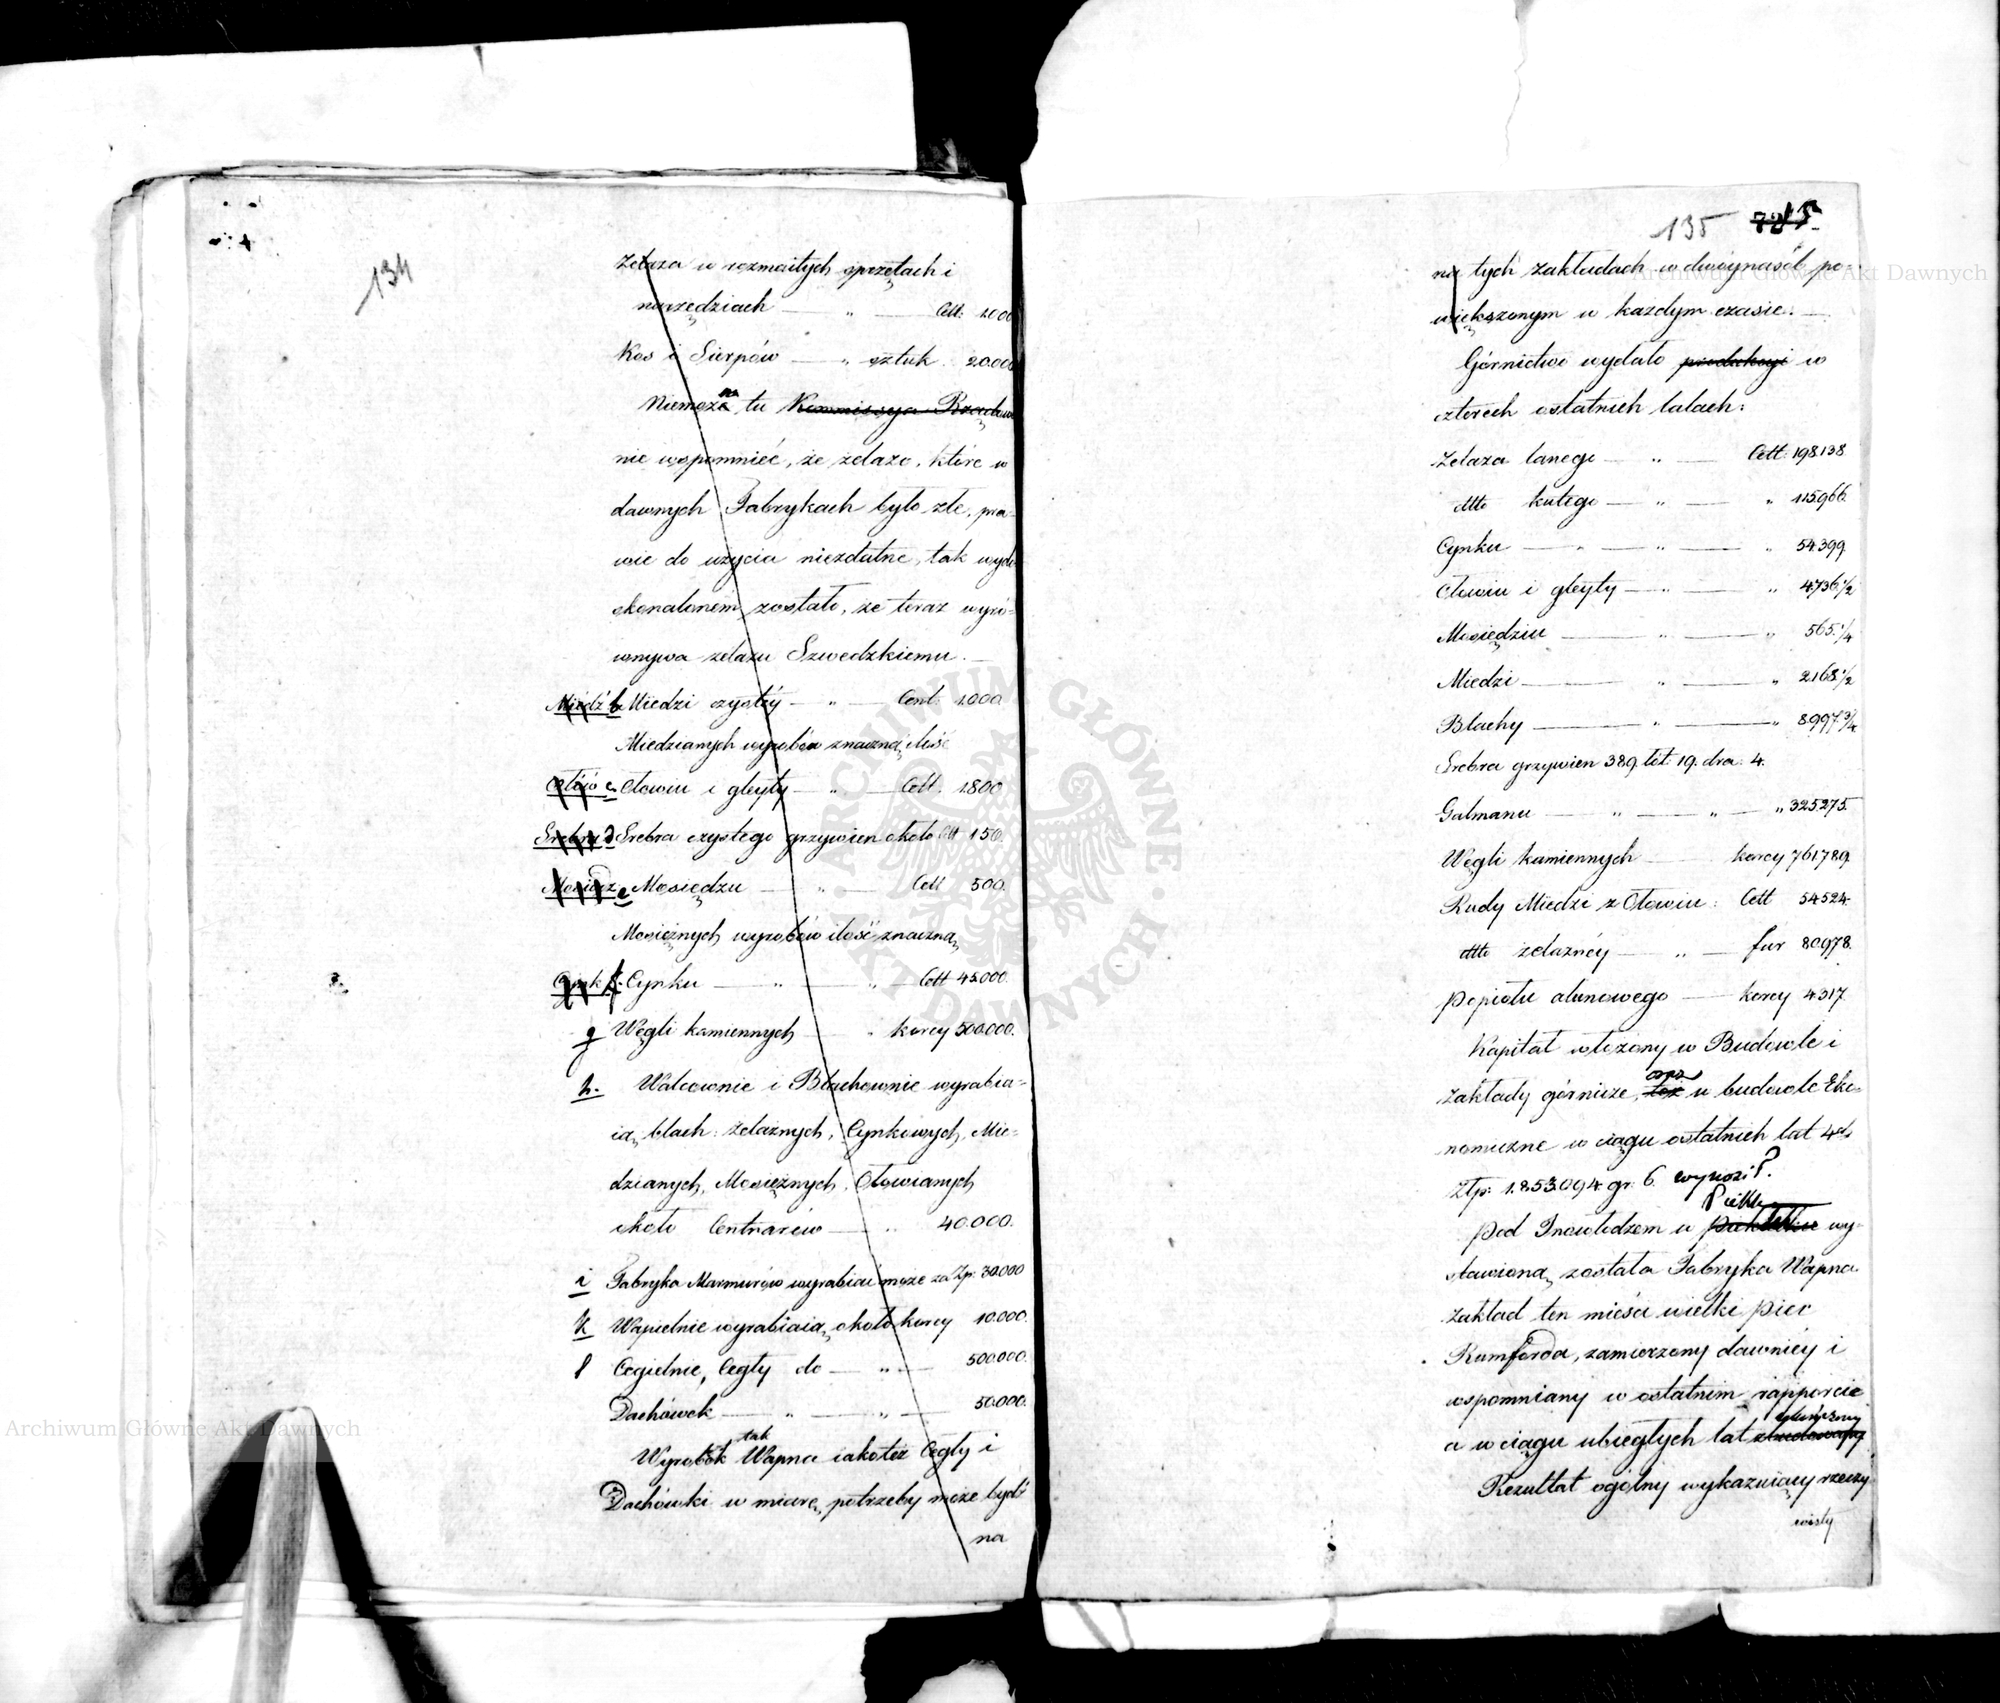 134
Żelaza w rozmaitych sprzętach i
narzędziach — " — Cett: 1.000
Kos i Sierpów — " sztuk 20.000
Niemożna tu Kommissya Rządow
nie wspomnieć, że żelazo, które w
dawnych Fabrykach było złe, pra-
wie do użycia niezdatne, tak wydo
skonalonem zostało, że teraz wyró-
wnywa żelazu Szwedzkiemu. —
Miedź b Miedzi czystéy — " — Cent: 1.000
Miedzianych wyrobów znaczną ilość
Ołów c. Ołowiu i gleyty — " — Cett. 1.800
Srebro d Srebra czystego grzywien około Cett 150.
Mosiądz e Mosiędzu — " — Cett 500.
Mosiężnych wyrobów ilość znaczną
Cynk f. Cynku — " — " — Cett 45.000.
g Węgli kamiennych — " korcy 500.000.
h. Walcownie i Blachownie wyrabia-
ią blach: żelaznych, Cynkowych, Mie-
dzianych, Mosiężnych, Ołowianych
około Centnarów — " 40.000.
i Fabryka Marmurów wyrabiać może za Zp: 30.000
k Wapielnie wyrabiaią około korcy 10.000.
l Cegielnie, Cegły do — " — 500.000.
Dachówek — " — " — 50.000.
tak
Wyrobek Wapna iakoteż Cegły i
Dachówki w miarę potrzeby może bydź
na
135
na tych zakładach w dwóynasób po-
większonym w każdym czasie. —
Górnictwo wydało produkcyi w
czterech ostatnich latach:
Żelaza lanego — " — Cett: 198.138
dtto kutego — " — " 115.966.
Cynku — " — " — " 54.399.
Ołowiu i gleyty — " — " 4.736 1/2
Mosiędziu — " — " 565. 1/4
Miedzi — " — " 2.168 1/2
Blachy — " — " 8.997 3/4
Srebra grzywien 389. łót: 19. dra: 4.
Galmanu — " — " — " 325.275.
Węgli kamiennych — korcy 761.789.
Rudy Miedzi z Ołowiu: Cett 54.524.
dtto żelaznéy — " — fur 80.978.
Popiołu ałunowego — korcy 4.317.
Kapitał włożony w Budowle i
oraz
zakłady górnicze, też w budowle Eko-
nomiczne w ciągu ostatnich lat 4ch
złp: 1.853.094 gr: 6. wynosi?
Piekle
Pod Inowłodzem w wy-
stawioną została Fabryka Wapna.
Zakład ten mieści wielki piec
Rumforda, zamierzony dawniéy i
wspomniany w ostatnim rapporcie
a w ciągu ubiegłych lat zbudowany
Rezultat ogólny wykazuiący rzeczy
wisty
ARCHIWUM GŁÓWNE AKT DAWNYCH
Archiwum Główne Akt Dawnych
Archiwum Główne Akt Dawnych